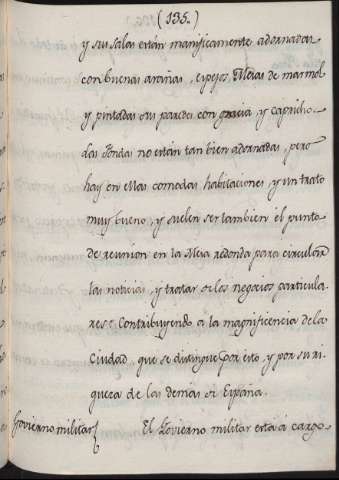 (135.)
y sus salas están manificamente adornadas
con buenas arañas, espejos, Mesas de marmol
y pintadas sus paredes con gracia, y capricho.
Las Fondas no están tan bien adornadas, pero
hay en ellas comodas habitaciones, y un trato
muy bueno, y suelen ser tambien el punto
de reunion en la Mesa redonda para circular
las noticias, y tratar de los negocios particula-
res. Contribuyendo a la magnificencia de la
Ciudad, que se distingue por esto, y por su ri-
queza de las demas de España.
Govierno militar
El Govierno militar está á cargo